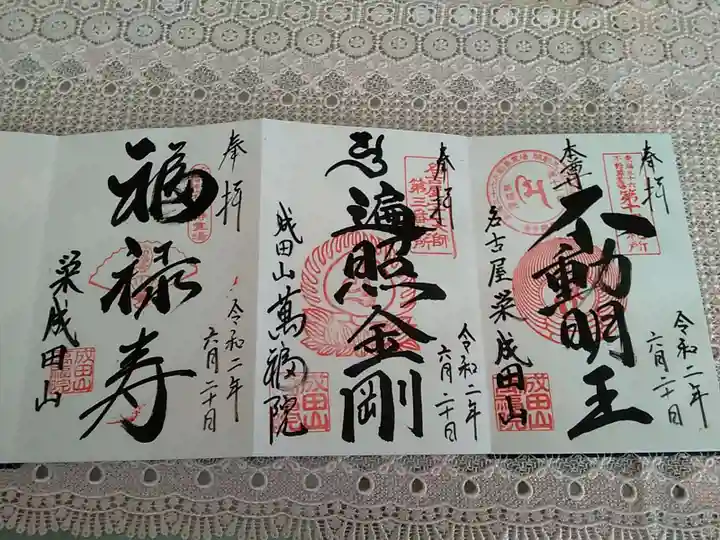 奉拝
本尊
不動明王
令和二年
六月二十日
名古屋栄成田山
成田山
奉拝
遍照金剛
令和二年
六月二十日
成田山萬福院
成田山
奉拝
福禄寿
令和二年
六月二十日
栄成田山
成田山